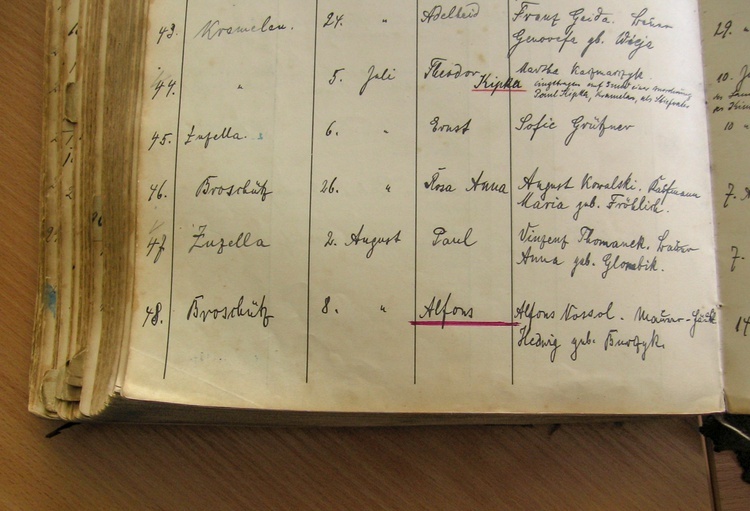 43. Kramelau. 24. " Adelheid Franz Gaida.
Genovefa gb.
44. " 5. Juli Theodor Martha Kaczmarzyk
Kipka eingetragen auf Grund einer
Kipka, Kramelau, als
45. Zuzella. 6. " Ernst Sofie Grützner
46. Broschütz 26. " Rosa Anna August Kowalski. Kaufmann
Maria geb. Fröhlich.
47. Zuzella 2. August Paul Vinzenz Thomanek.
Anna geb. Glombik.
48. Broschütz 8. " Alfons Alfons Kossol. Maurer-
Hedwig geb. Burzyk.
29. "
10.
10 "
7.
7.
14